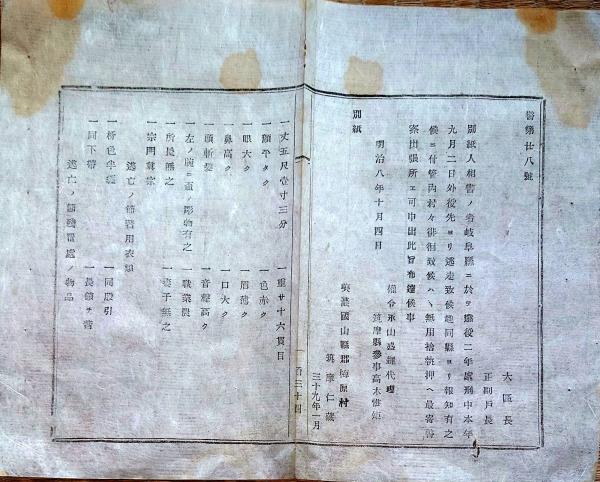 番外廿八號
大區長
正副戶長
別紙人相書ノ者岐阜縣ニ於テ懲役二年處刑中本年
九月二日外役先ヨリ逃走致候趣同縣ヨリ報知有之
候ニ付管內村々徘徊致候ハヽ無用捨執押ヘ最寄警
察出張所ヘ可申出此旨布達候事
明治八年十月四日
權令永山盛輝代理
筑摩縣參事高木惟矩
別紙
美濃國山縣郡梅原村
筑摩仁藏
三十九年一月
一丈五尺壹寸三分
一重サ十六貫目
一顏平タク
一色赤ク
一眼大ク
一眉薄ク
一鼻高ク
一口大ク
一頭斬髮
一音聲高ク
一左ノ腕ニ ノ彫物有之
一職業農
一所長無之
一妻子無之
一宗門禪宗
逃亡ノ節着用衣類
一柿色半纏
一同股引
一同下帶
一長繻半 
逃亡ノ節殘置處ノ物品
百三十四